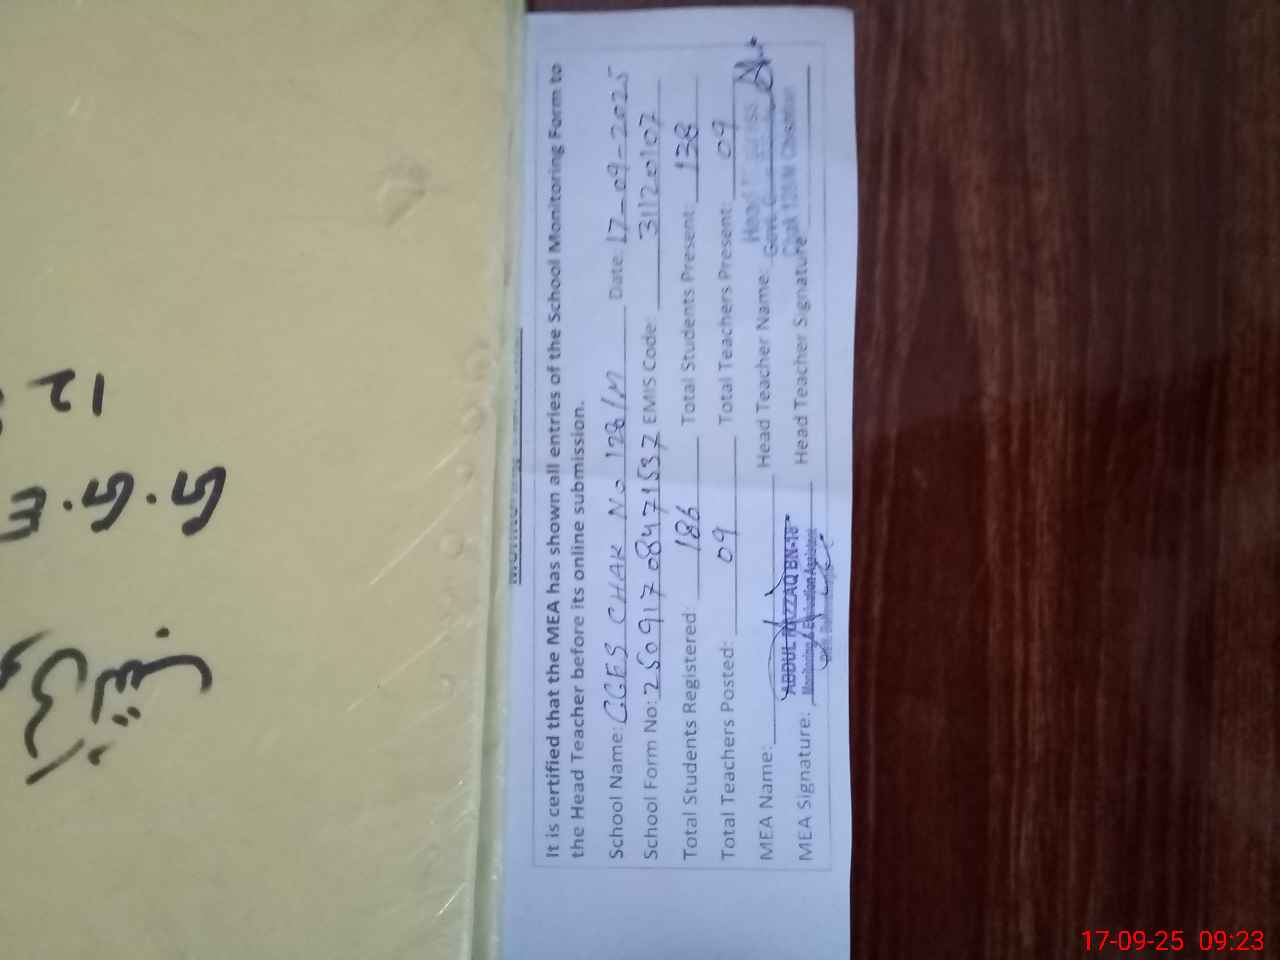 It is certified that the MEA has shown all entries of the School Monitoring Form to
the Head Teacher before its online submission.
School Name: GGES CHAK No 128/M Date: 17-09-2025
School Form No: 25091708471537 EMIS Code: 31120107
Total Students Registered: 186 Total Students Present: 138
Total Teachers Posted: 09 Total Teachers Present: 09
MEA Name: Head Teacher Name: Head
ABDUL RAZZAQ BN-18
Monitoring & Evaluation Assistant
MEA Signature: Head Teacher Signature
Govt. G
Chak 128/M Chishtian
G.G.E
12
17-09-25 09:23